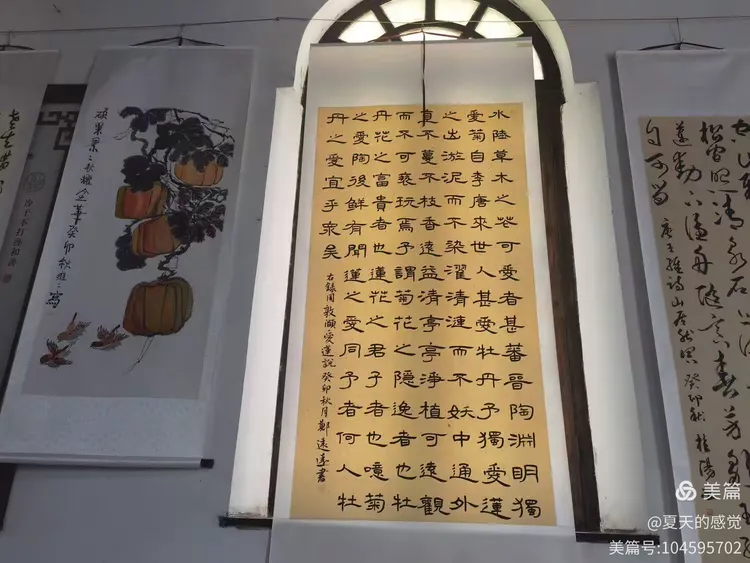 水陸草木之花可愛者甚蕃晉陶淵明獨
愛菊自李唐來世人甚愛牡丹予獨愛蓮
之出淤泥而不染濯清漣而不妖中通外
直不蔓不枝香遠益清亭亭淨植可遠觀
而不可褻玩焉予謂菊花之隱逸者也牡
丹花之富貴者也蓮花之君子者也噫菊
之愛陶後鮮有聞蓮之愛同予者何人牡
丹之愛宜乎衆矣
右錄周敦頤愛蓮說癸卯秋月鄭遠書
碩果累々秋
癸卯秋
清泉石上
蓮動下漁舟隨意春芳
自可留
王維詩山居秋暝 癸卯秋
美篇
@夏天的感觉
美篇号:104595702